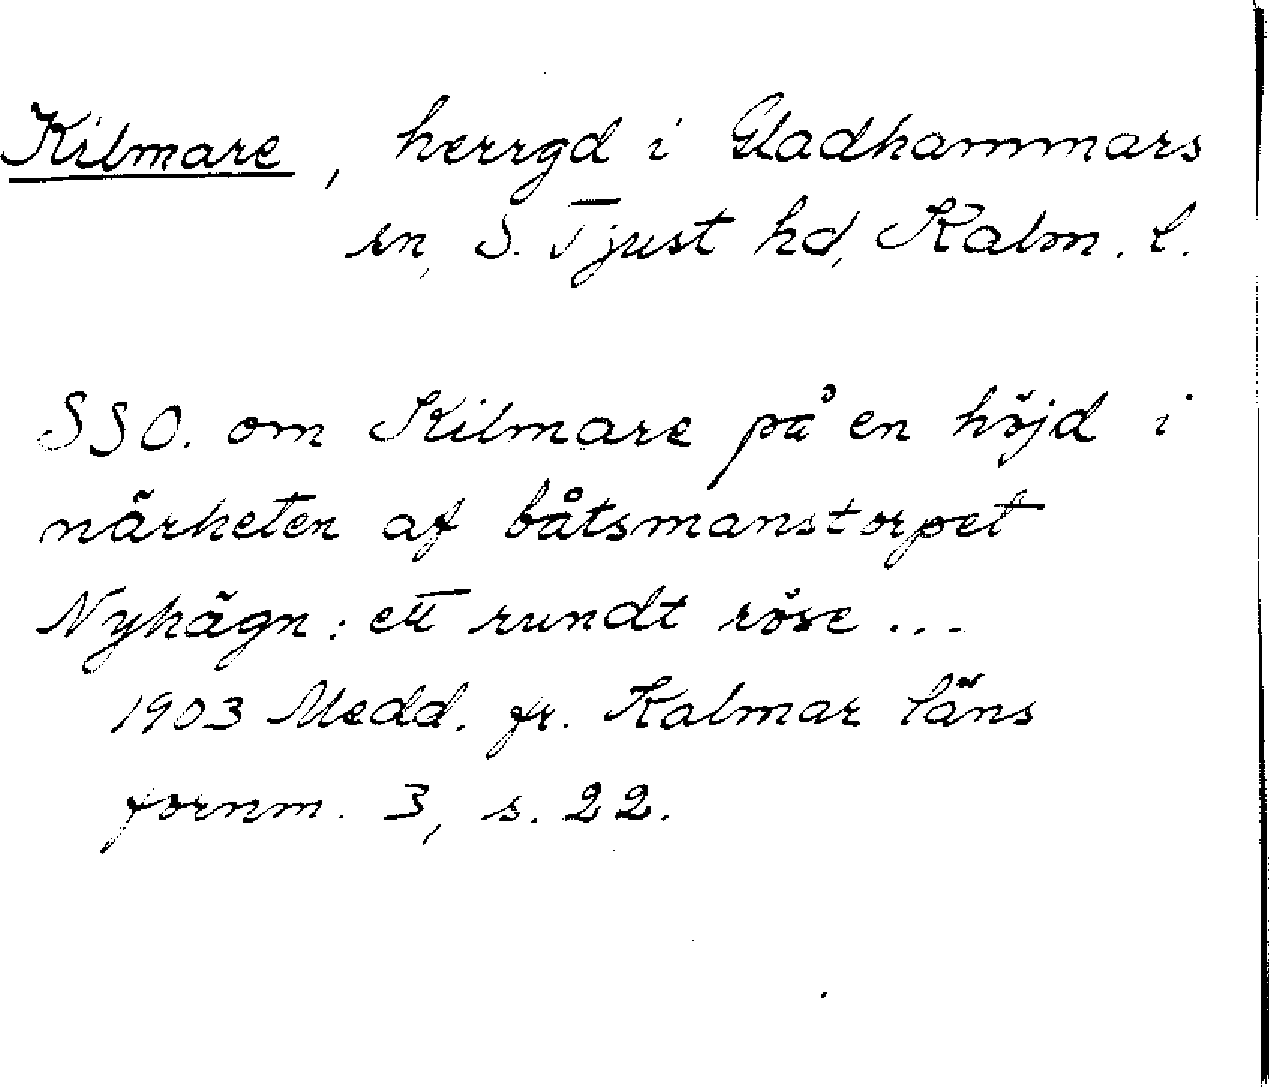 Kilmare, herrgd i Gladhammars
sn, S. Tjust hd, Kalm. l.
SSO. om Kilmare på en höjd i
närheten af båtsmanstorpet
Nyhägn: ett rundt röse...
1903 Medd. fr. Kalmar läns
fornm. 3, s. 22.